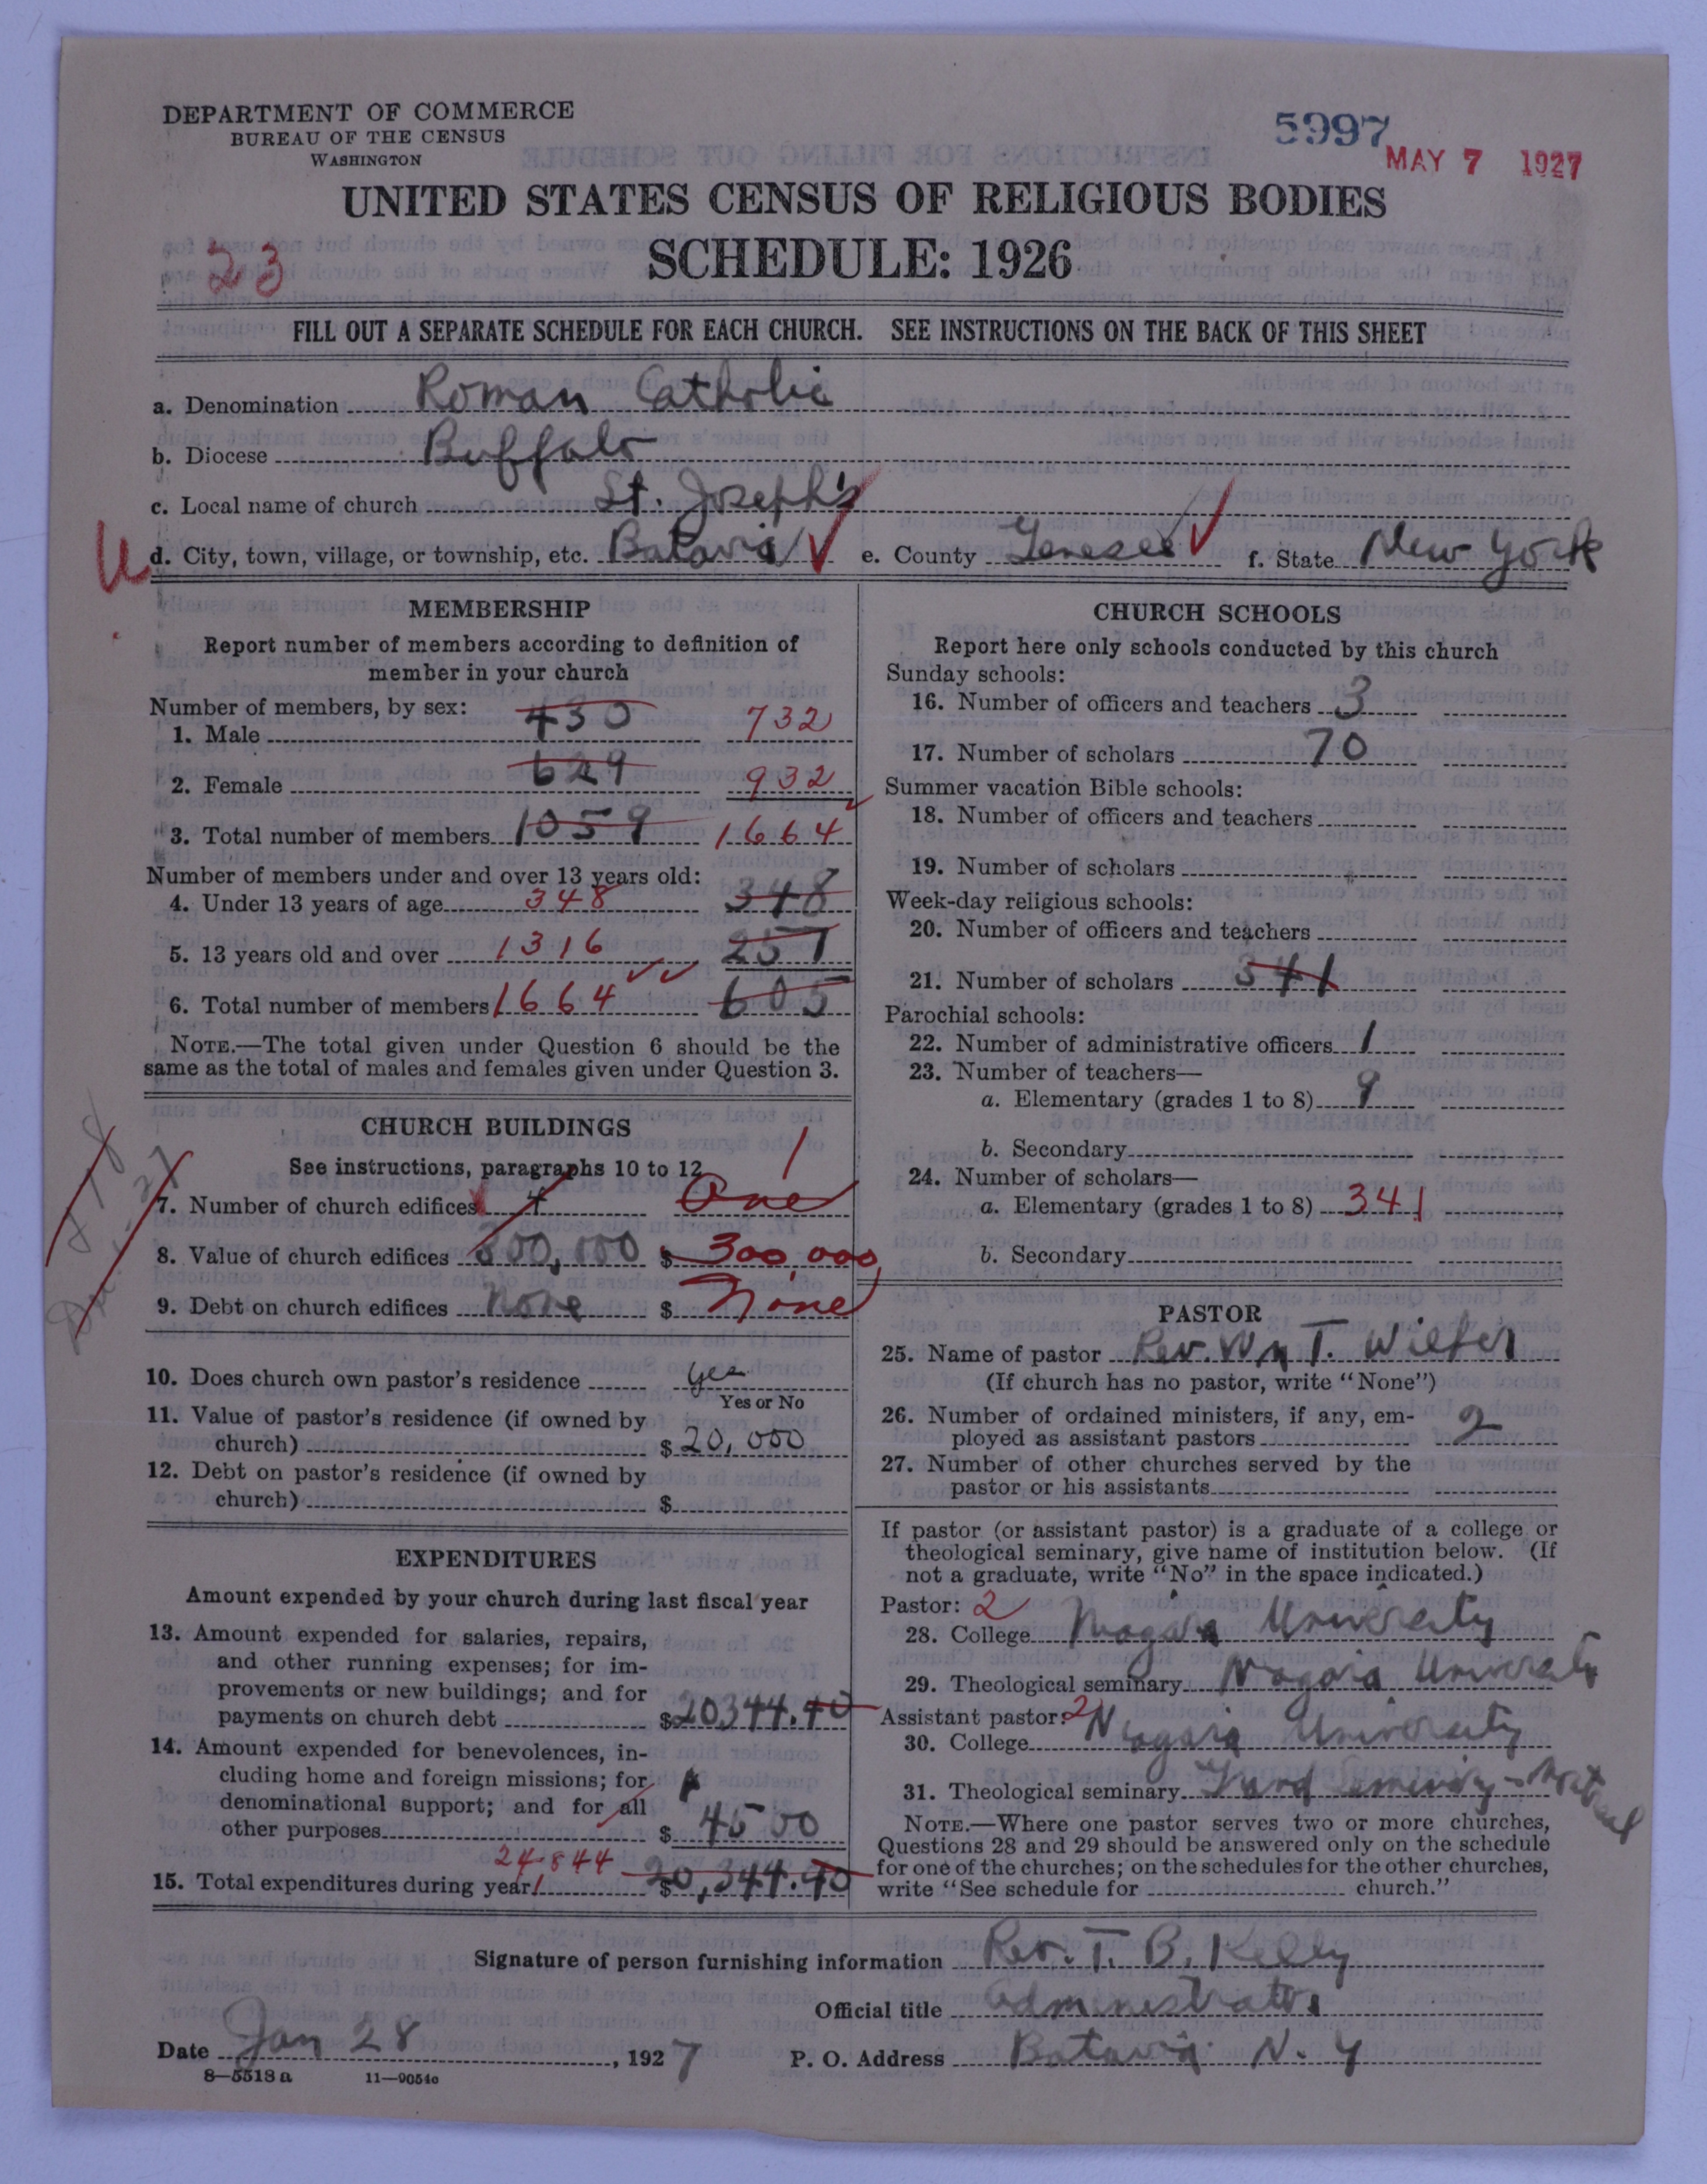 DEPARTMENT OF COMMERCE
BUREAU OF THE CENSUS
WASHINGTON
5997
MAY 7 1927
UNITED STATES CENSUS OF RELIGIOUS BODIES
SCHEDULE: 1926
23
FILL OUT A SEPARATE SCHEDULE FOR EACH CHURCH. SEE INSTRUCTIONS ON THE BACK OF THIS SHEET
a. Denomination Roman Catholic
b. Diocese Buffalo
c. Local name of church St. Joseph's
d. City, town, village, or township, etc. Batavia e. County Genesee f. State New York
MEMBERSHIP
Report number of members according to definition of
member in your church
Number of members, by sex:
1. Male 430 732
2. Female 629 932
3. Total number of members 1059 1664
Number of members under and over 13 years old:
4. Under 13 years of age 348 348
5. 13 years old and over 1316 257
6. Total number of members 1664 605
NOTE.—The total given under Question 6 should be the
same as the total of males and females given under Question 3.
CHURCH BUILDINGS
See instructions, paragraphs 10 to 12
1
7. Number of church edifices 4 One
8. Value of church edifices 300,000 $ 300,000
9. Debt on church edifices None $ None
10. Does church own pastor's residence yes
Yes or No
11. Value of pastor's residence (if owned by
church) $ 20,000
12. Debt on pastor's residence (if owned by
church) $
EXPENDITURES
Amount expended by your church during last fiscal year
13. Amount expended for salaries, repairs,
and other running expenses; for im-
provements or new buildings; and for
payments on church debt $20344.40
14. Amount expended for benevolences, in-
cluding home and foreign missions; for
denominational support; and for all
other purposes $ 4500
24844
15. Total expenditures during year $20,344.40
CHURCH SCHOOLS
Report here only schools conducted by this church
Sunday schools:
16. Number of officers and teachers 3
17. Number of scholars 70
Summer vacation Bible schools:
18. Number of officers and teachers
19. Number of scholars
Week-day religious schools:
20. Number of officers and teachers
21. Number of scholars 341
Parochial schools:
22. Number of administrative officers 1
23. Number of teachers—
a. Elementary (grades 1 to 8) 9
b. Secondary
24. Number of scholars—
a. Elementary (grades 1 to 8) 341
b. Secondary
PASTOR
25. Name of pastor Rev. Wm T.
(If church has no pastor, write "None")
26. Number of ordained ministers, if any, em-
ployed as assistant pastors 2
27. Number of other churches served by the
pastor or his assistants
If pastor (or assistant pastor) is a graduate of a college or
theological seminary, give name of institution below. (If
not a graduate, write "No" in the space indicated.)
Pastor: 2
28. College Niagara University
29. Theological seminary Niagara University
Assistant pastor: 2
30. College Niagara University
31. Theological seminary Grand Seminary - Montreal
NOTE.—Where one pastor serves two or more churches,
Questions 28 and 29 should be answered only on the schedule
for one of the churches; on the schedules for the other churches,
write "See schedule for church."
Signature of person furnishing information Rev. T. B. Kelly
Official title Administrator
Date Jan 28, 1927 P. O. Address Batavia N. Y
8—5518 a 11—9054c